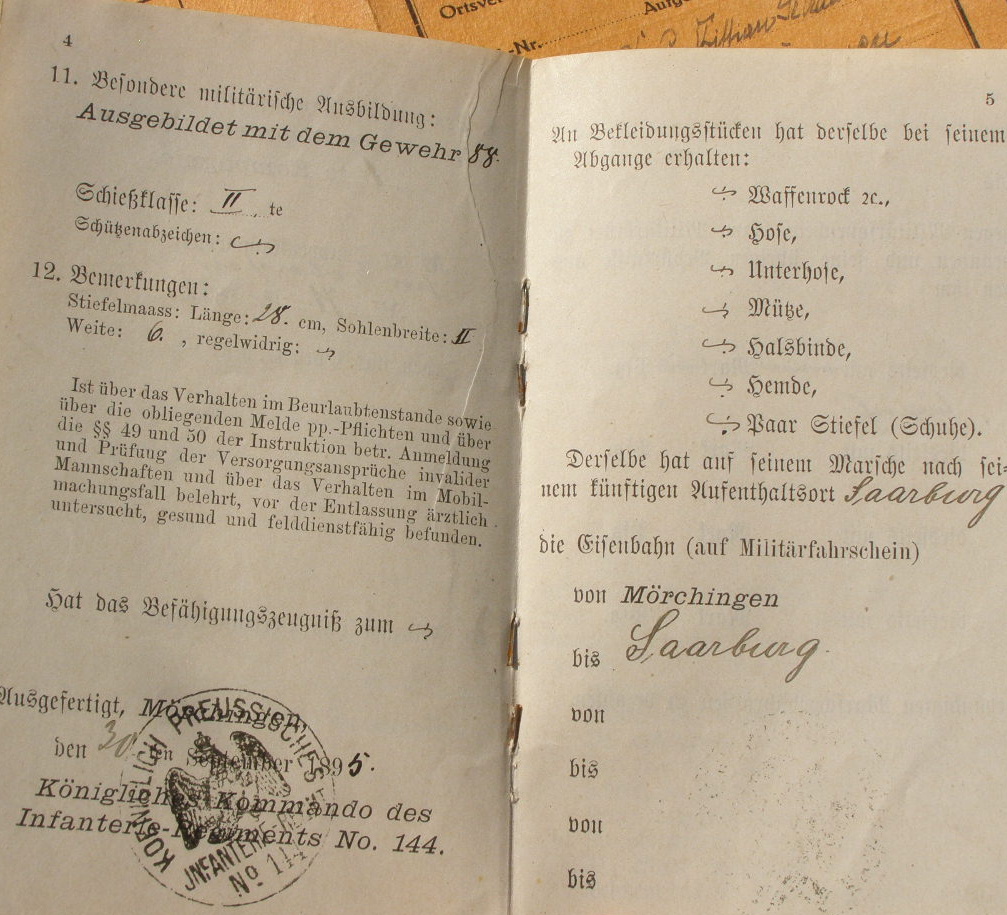 Ortsver
Aufge
-Nr.
4
11. Besondere militärische Ausbildung:
Ausgebildet mit dem Gewehr 88.
Schießklasse: II te
Schützenabzeichen:
12. Bemerkungen:
Stiefelmaass: Länge: 28. cm, Sohlenbreite: II
Weite: 6. , regelwidrig:
Ist über das Verhalten im Beurlaubtenstande sowie
über die obliegenden Melde pp.-Pflichten und über
die §§ 49 und 50 der Instruktion betr. Anmeldung
und Prüfung der Versorgungsansprüche invalider
Mannschaften und über das Verhalten im Mobil-
machungsfall belehrt, vor der Entlassung ärztlich
untersucht, gesund und felddienstfähig befunden.
Hat das Befähigungszeugniß zum
Ausgefertigt, Mörchingen,
den 30 ten September 1895.
Königliches Kommando des
Infanterie-Regiments No. 144.
KOENIGLICH PREUSSISCHES
INFANTERIE-
No 144
5
An Bekleidungsstücken hat derselbe bei seinem
Abgange erhalten:
Waffenrock ꝛc.,
Hose,
Unterhose,
Mütze,
Halsbinde,
Hemde,
Paar Stiefel (Schuhe).
Derselbe hat auf seinem Marsche nach sei=
nem künftigen Aufenthaltsort Saarburg
die Eisenbahn (auf Militärfahrschein)
von Mörchingen
bis Saarburg.
von
bis
von
bis